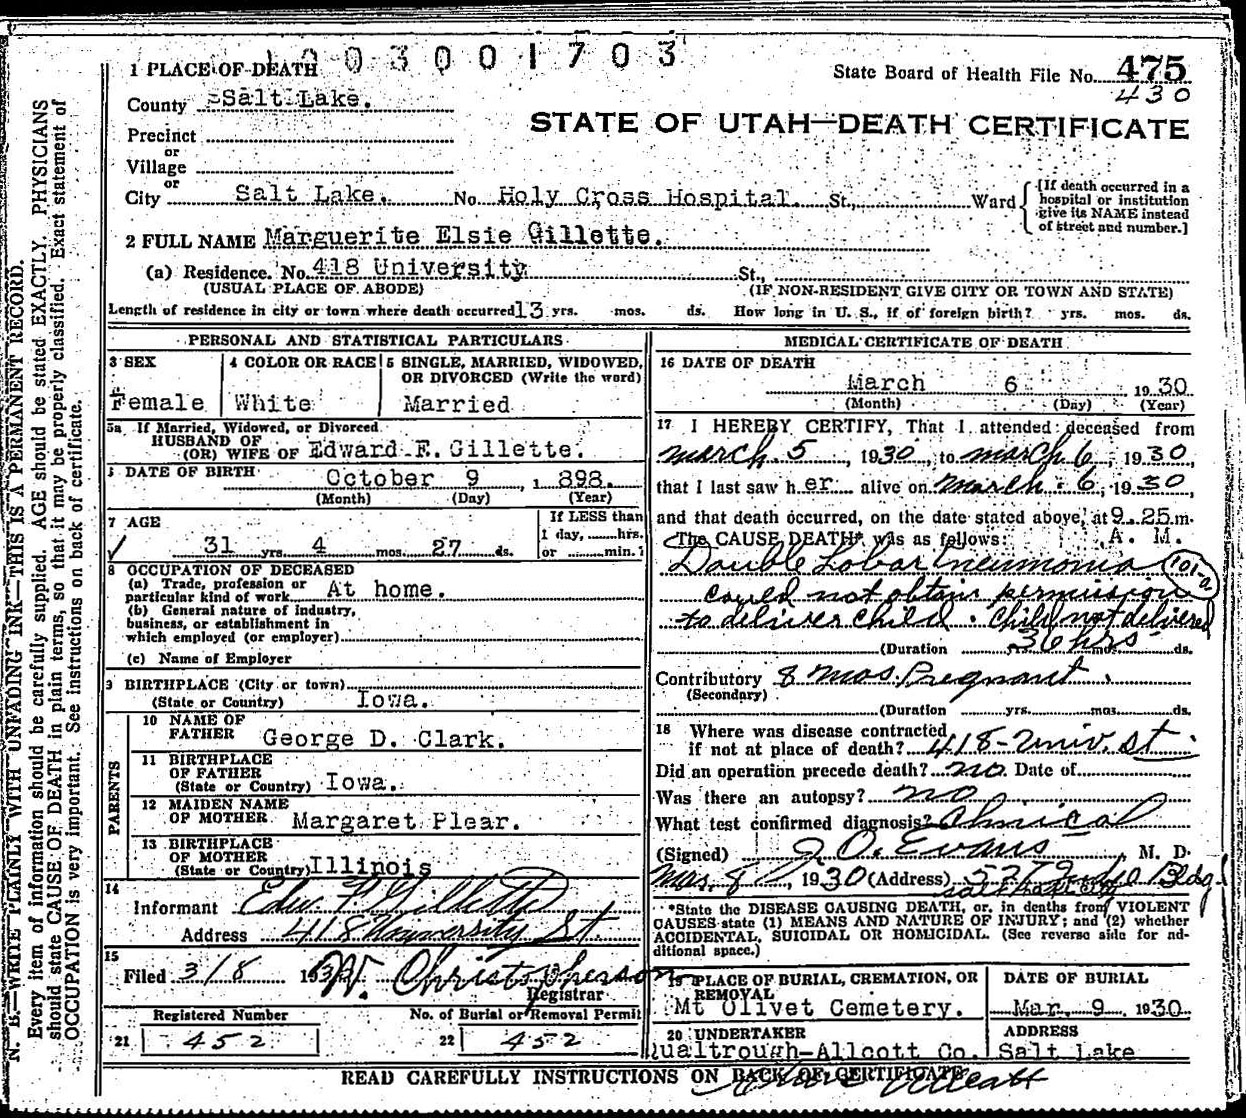 1003001703
1 PLACE OF DEATH
State Board of Health File No. 475
430
County Salt Lake.
STATE OF UTAH—DEATH CERTIFICATE
Precinct
or
Village
or
City Salt Lake. No. Holy Cross Hospital. St., Ward
[If death occurred in a hospital or institution give its NAME instead of street and number.]
2 FULL NAME Marguerite Elsie Gillette.
(a) Residence. No. 418 University St.,
(USUAL PLACE OF ABODE) (IF NON-RESIDENT GIVE CITY OR TOWN AND STATE)
Length of residence in city or town where death occurred 13 yrs. mos. ds. How long in U. S., if of foreign birth? yrs. mos. ds.
PERSONAL AND STATISTICAL PARTICULARS
3 SEX
Female
4 COLOR OR RACE
White
5 SINGLE, MARRIED, WIDOWED,
OR DIVORCED (Write the word)
Married
5a If Married, Widowed, or Divorced
HUSBAND OF
(OR) WIFE OF Edward F. Gillette.
DATE OF BIRTH
October 9, 1898.
(Month) (Day) (Year)
7 AGE
31 yrs. 4 mos. 27 ds.
If LESS than
1 day, hrs.
or min.?
8 OCCUPATION OF DECEASED
(a) Trade, profession or
particular kind of work At home.
(b) General nature of industry,
business, or establishment in
which employed (or employer)
(c) Name of Employer
9 BIRTHPLACE (City or town)
(State or Country) Iowa.
PARENTS
10 NAME OF
FATHER George D. Clark.
11 BIRTHPLACE
OF FATHER
(State or Country) Iowa.
12 MAIDEN NAME
OF MOTHER Margaret Plear.
13 BIRTHPLACE
OF MOTHER
(State or Country) Illinois
14
Informant Edw. F. Gillette
Address 418 University St.
15
Filed 3/8 193
W. Christopherson
Registrar
Registered Number
21 452
No. of Burial or Removal Permit
22 452
MEDICAL CERTIFICATE OF DEATH
16 DATE OF DEATH
March 6 1930
(Month) (Day) (Year)
17 I HEREBY CERTIFY, That I attended deceased from
March 5, 1930, to March 6, 1930,
that I last saw her alive on March 6, 1930,
and that death occurred, on the date stated above, at 9.25 m.
The CAUSE DEATH* was as follows: A. M.
Double Lobar Pneumonia 101-a
could not obtain permission
to deliver child. Child not delivered
(Duration yrs. 36 hrs mos. ds.
Contributory 8 mos. Pregnant.
(Secondary)
(Duration yrs. mos. ds.
18 Where was disease contracted
if not at place of death? 418-Univ. St.
Did an operation precede death? no Date of
Was there an autopsy? no
What test confirmed diagnosis? Clinical
(Signed) J. O. Evans, M. D.
Mar. 8, 1930 (Address) Judge Bldg.
Salt Lake City
*State the DISEASE CAUSING DEATH, or, in deaths from VIOLENT
CAUSES state (1) MEANS AND NATURE OF INJURY; and (2) whether
ACCIDENTAL, SUICIDAL OR HOMICIDAL. (See reverse side for ad-
ditional space.)
19 PLACE OF BURIAL, CREMATION, OR
REMOVAL
Mt Olivet Cemetery.
DATE OF BURIAL
Mar. 9 1930.
20 UNDERTAKER
Qualtrough-Allcott Co.
ADDRESS
Salt Lake
READ CAREFULLY INSTRUCTIONS ON BACK OF CERTIFICATE
N. B.—WRITE PLAINLY WITH UNFADING INK—THIS IS A PERMANENT RECORD.
Every item of information should be carefully supplied. AGE should be stated EXACTLY. PHYSICIANS
should state CAUSE OF DEATH in plain terms, so that it may be properly classified. Exact statement of
OCCUPATION is very important. See instructions on back of certificate.